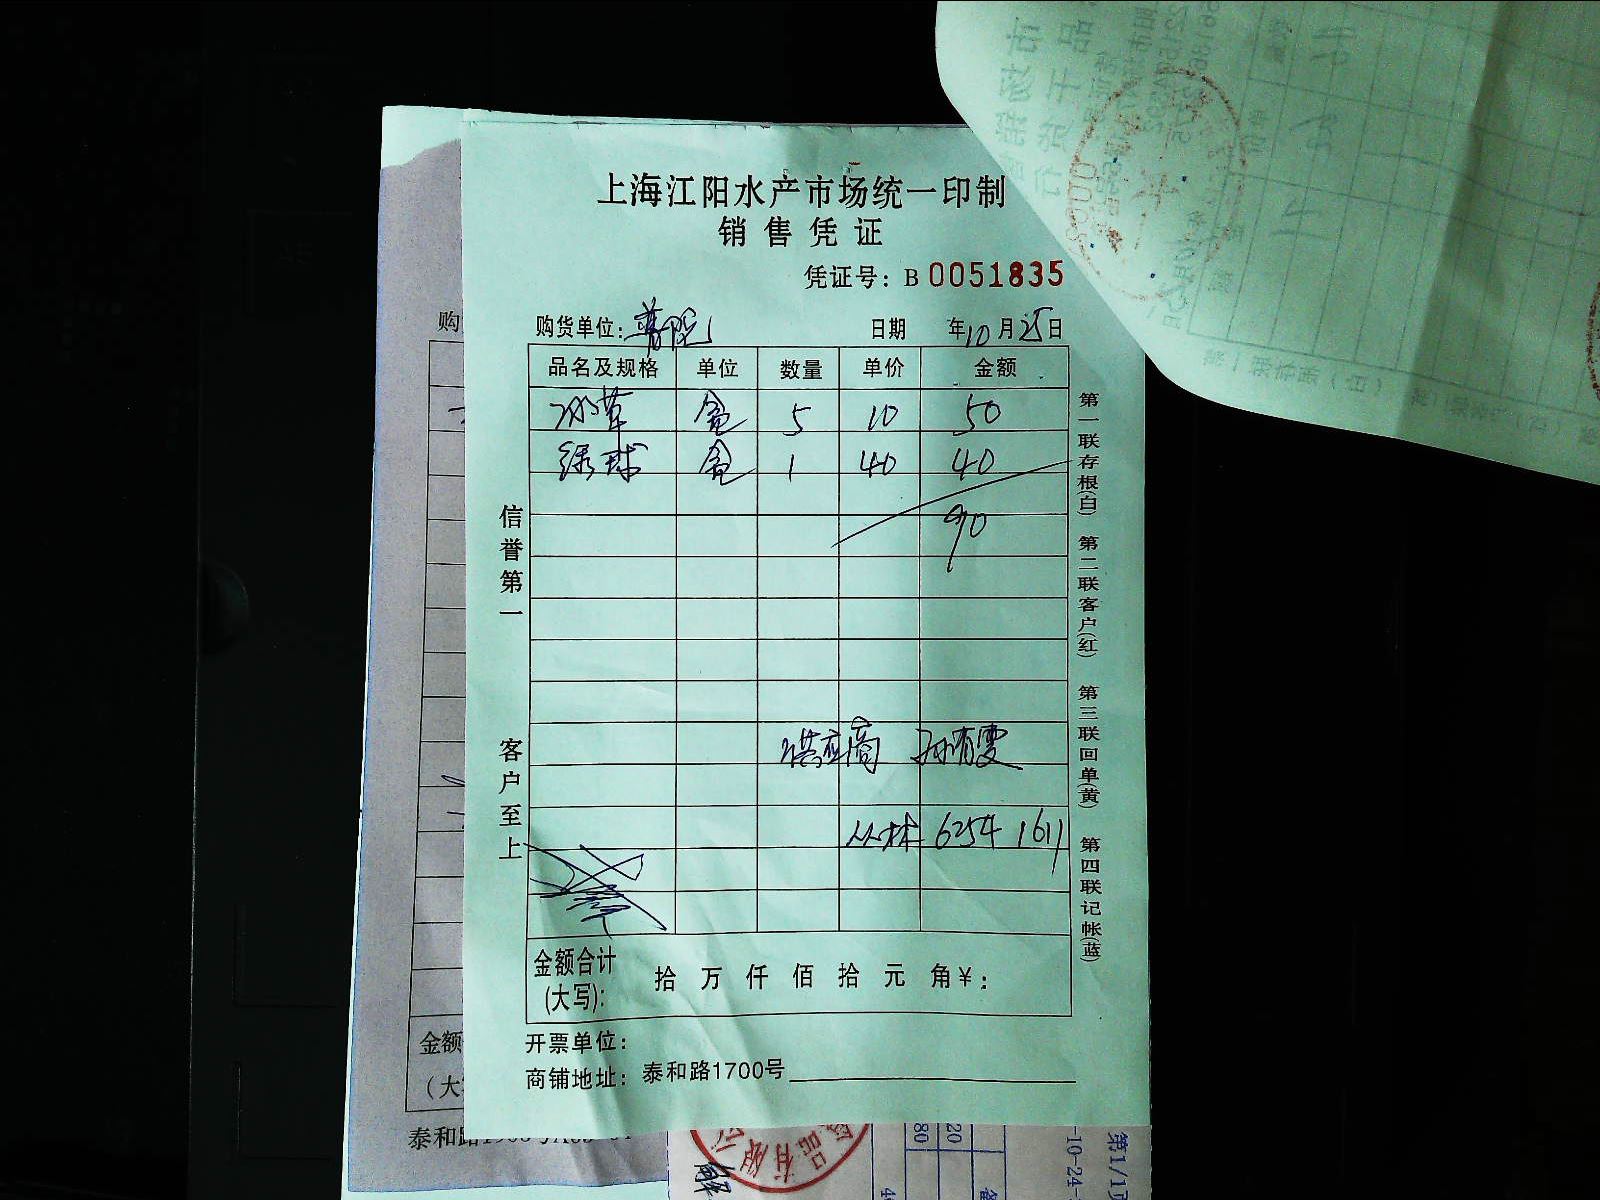 上海江阳水产市场统一印制
销售凭证
凭证号：B 0051835
购货单位：普陀 日期 年10月25日
品名及规格 单位 数量 单价 金额
冰草 盒 5 10 50
绿球 盒 1 40 40
90
供应商 孙有雯
丛林 6254 1611
金额合计
(大写)： 拾 万 仟 佰 拾 元 角 ¥：
开票单位：
商铺地址：泰和路1700号
信誉第一
客户至上
第一联存根(白) 第二联客户(红) 第三联回单(黄) 第四联记帐(蓝)
购
金额
(大
泰和路
品有限公
80
20
-10-24-
第1/1